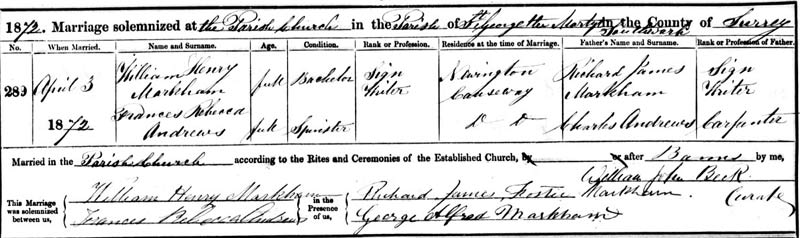 1872. Marriage solemnized at the Parish Church in the Parish of St George the Martyr Southwark in the County of Surrey
No. When Married. Name and Surname. Age. Condition. Rank or Profession. Residence at the time of Marriage. Father's Name and Surname. Rank or Profession of Father.
289 April 3 1872 William Henry Markham full Bachelor Sign Writer Newington Causeway Richard James Markham Sign Writer
Frances Rebecca Andrews full Spinster Do Do Charles Andrews Carpenter
Married in the Parish Church according to the Rites and Ceremonies of the Established Church, by or after Banns by me,
William John Beck
Curate
This Marriage was solemnized between us, William Henry Markham in the Presence of us, Richard James Markham
Frances Rebecca Andrews George Alfred Markham